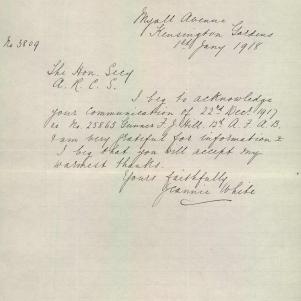 Myall Avenue
Kensington Gardens
1st Jany 1918
No 3809
The Hon. Secy
A. R. C. S.
I beg to acknowledge
your Communication of 22nd Decr 1917
re No. 25865 Gunner F. J. Hill. A. F. A. B.
I am very grateful for information &
I beg that you will accept my
warmest thanks.
Yours faithfully
Jeannie White